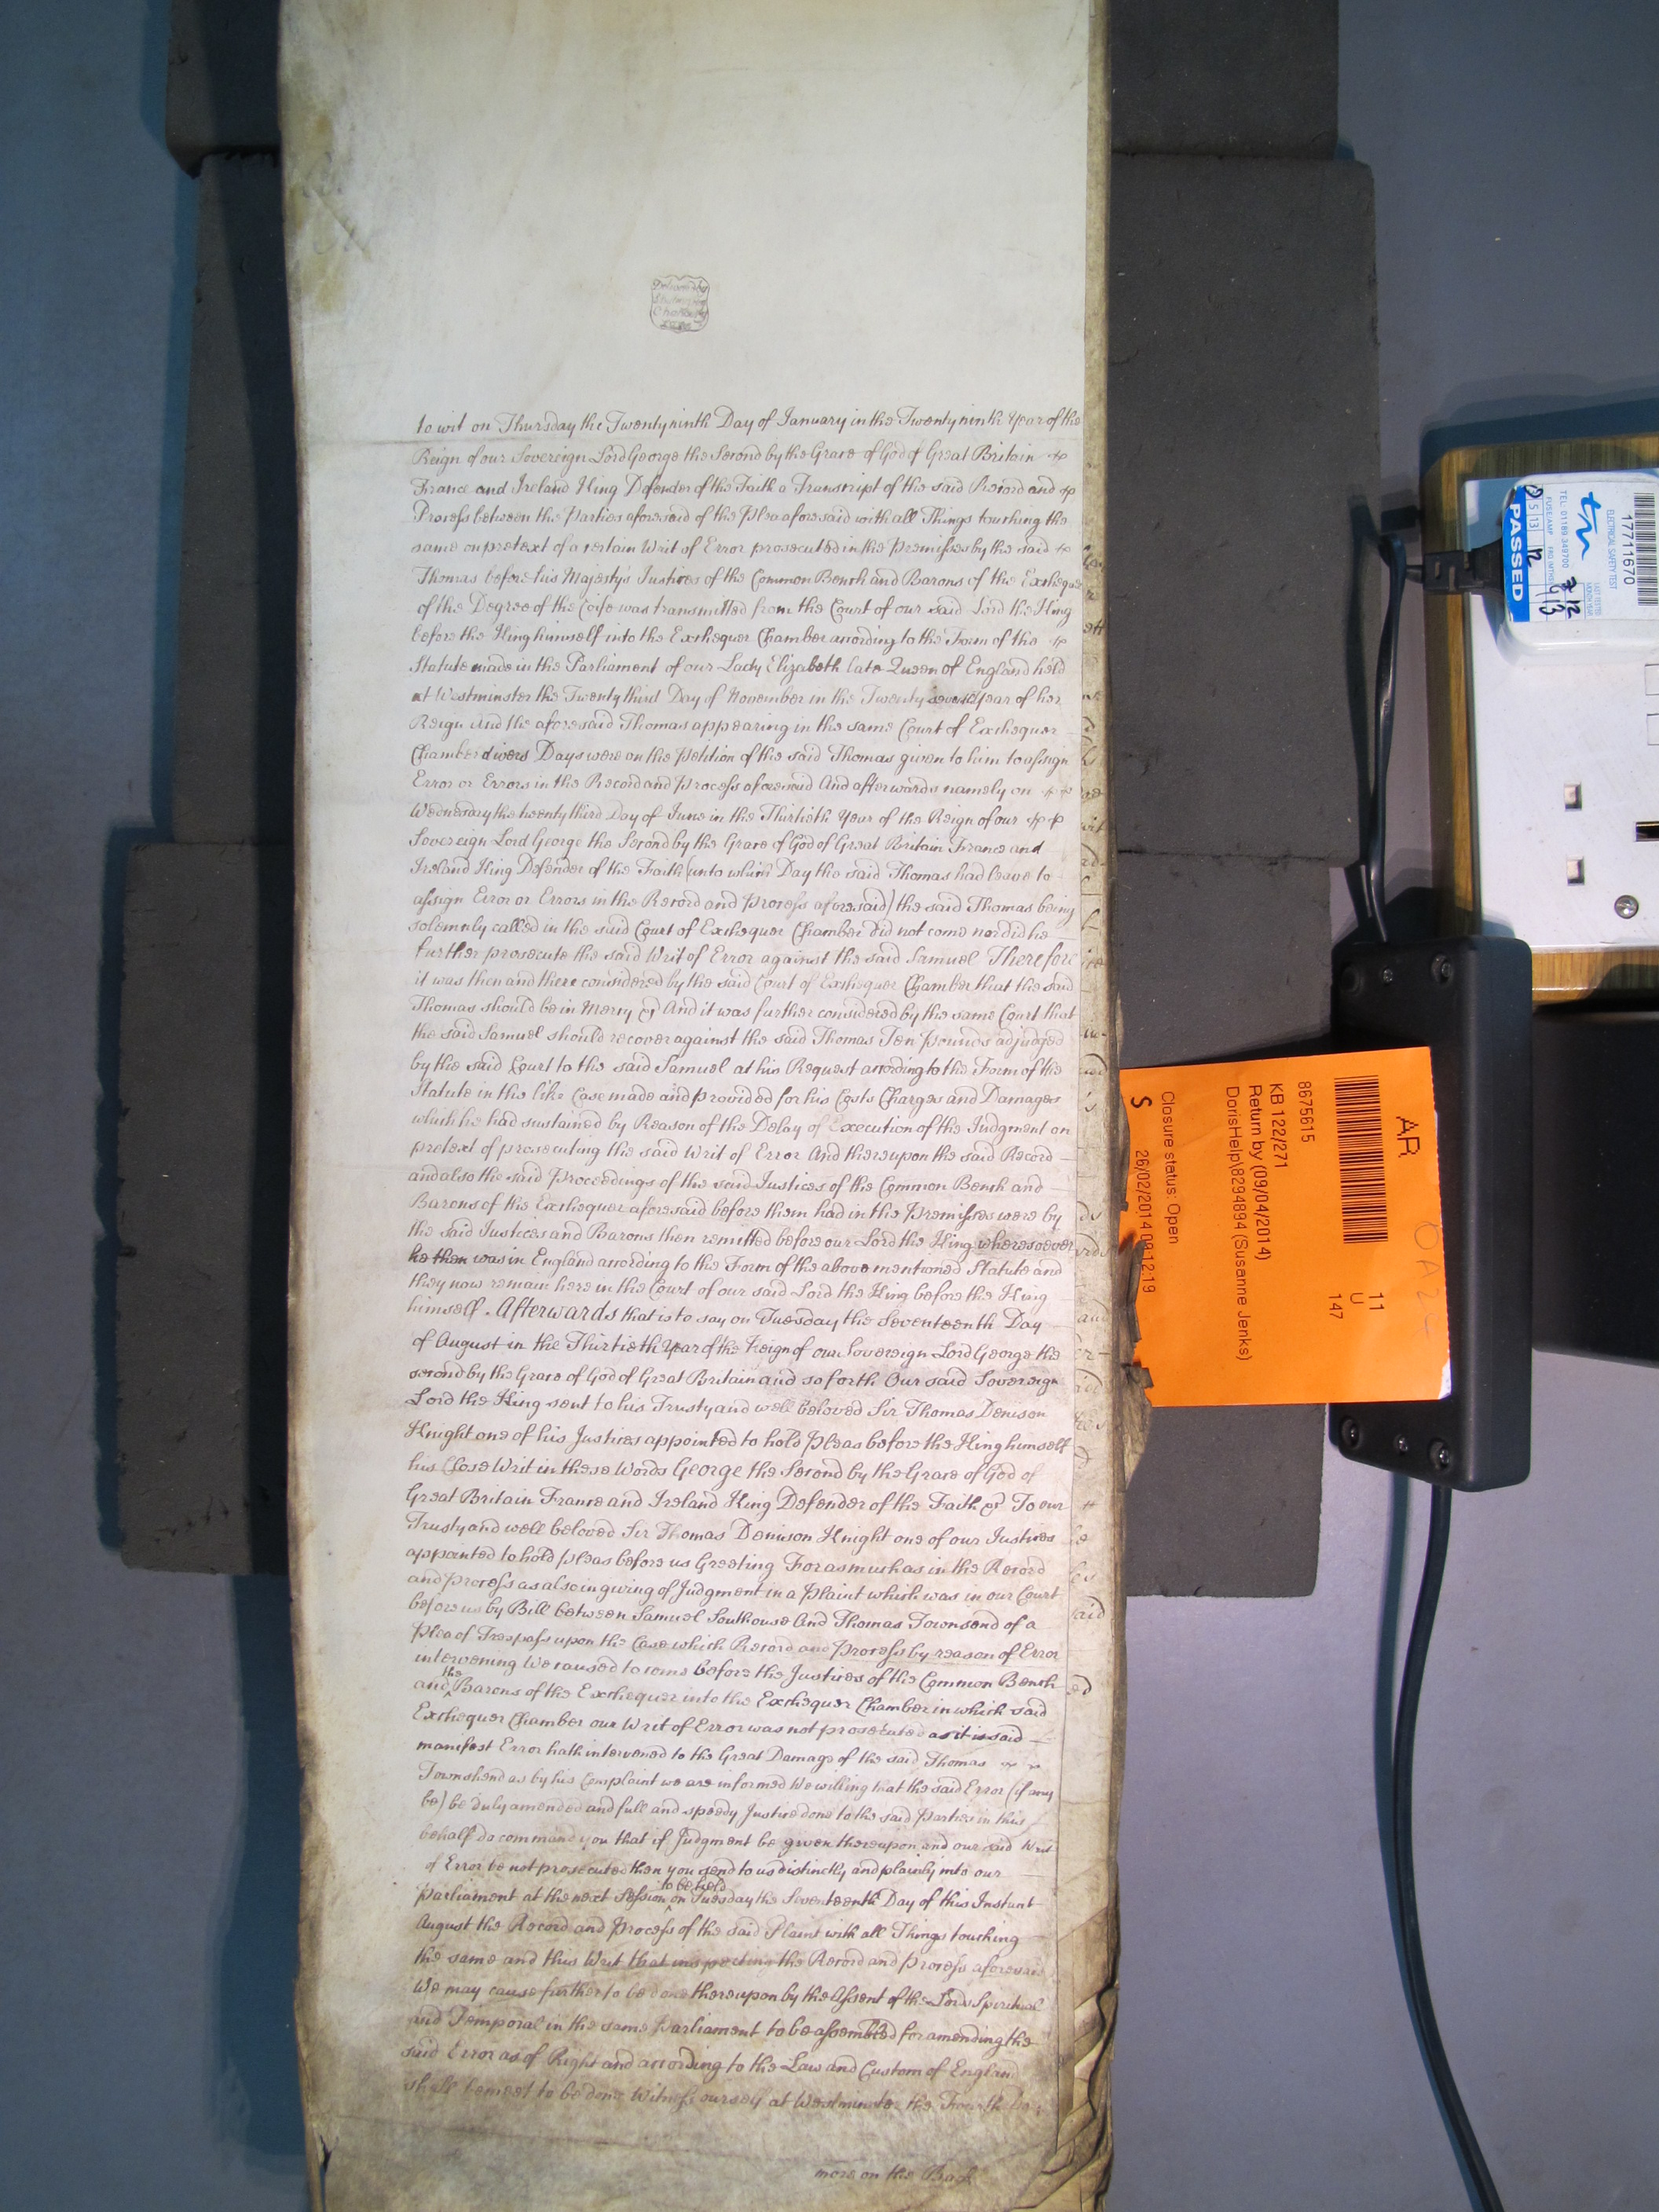 to wit on Thursday the Twenty ninth Day of January in the Twenty ninth Year of the
Reign of our Sovereign Lord George the Second by the Grace of God of Great Britain
France and Ireland King Defender of the Faith a Transcript of the said Record and
Process between the Parties aforesaid of the Plea aforesaid with all Things touching the
same on pretext of a certain Writ of Error prosecuted in the Premisses by the said
Thomas before his Majesty's Justices of the Common Bench and Barons of the Exchequer
of the Degree of the Coife was transmitted from the Court of our said Lord the King
before the King himself into the Exchequer Chamber according to the Form of the
Statute made in the Parliament of our Lady Elizabeth late Queen of England held
at Westminster the Twenty third Day of November in the Twenty seventh Year of her
Reign And the aforesaid Thomas appearing in the same Court of Exchequer
Chamber divers Days were on the Petition of the said Thomas given to him to assign
Error or Errors in the Record and Process aforesaid And afterwards namely on
Wednesday the twenty third Day of June in the Thirtieth Year of the Reign of our
Sovereign Lord George the Second by the Grace of God of Great Britain France and
Ireland King Defender of the Faith (unto which Day the said Thomas had leave to
assign Error or Errors in the Record and Process aforesaid) the said Thomas being
solemnly called in the said Court of Exchequer Chamber did not come nor did he
further prosecute the said Writ of Error against the said Samuel Therefore
it was then and there considered by the said Court of Exchequer Chamber that the said
Thomas should be in Mercy &c And it was further considered by the same Court that
the said Samuel should recover against the said Thomas Ten Pounds adjudged
by the said Court to the said Samuel at his Request according to the Form of the
Statute in the like Case made and provided for his Costs Charges and Damages
which he had sustained by Reason of the Delay of Execution of the Judgment on
pretext of prosecuting the said Writ of Error And thereupon the said Record
and also the said Proceedings of the said Justices of the Common Bench and
Barons of the Exchequer aforesaid before them had in the Premisses were by
the said Justices and Barons then remitted before our Lord the King wheresoever
he then was in England according to the Form of the above mentioned Statute and
they now remain here in the Court of our said Lord the King before the King
himself. Afterwards that is to say on Tuesday the Seventeenth Day
of August in the Thirtieth Year of the Reign of our Sovereign Lord George the
second by the Grace of God of Great Britain and so forth Our said Sovereign
Lord the King sent to his Trusty and well beloved Sir Thomas Denison
Knight one of his Justices appointed to hold Pleas before the King himself
his Close Writ in these Words George the Second by the Grace of God of
Great Britain France and Ireland King Defender of the Faith &c To our
Trusty and well beloved Sir Thomas Denison Knight one of our Justices
appointed to hold Pleas before us Greeting Forasmuch as in the Record
and Process as also in giving of Judgment in a Plaint which was in our Court
before us by Bill between Samuel Southouse And Thomas Townsend of a
Plea of Trespass upon the Case which Record and Process by reason of Error
intervening We caused to come before the Justices of the Common Bench
and the Barons of the Exchequer into the Exchequer Chamber in which said
Exchequer Chamber our Writ of Error was not prosecuted as it is said
manifest Error hath intervened to the Great Damage of the said Thomas
Townshend as by his Complaint we are informed We willing that the said Error (if any
be) be duly amended and full and speedy Justice done to the said Parties in this
behalf do command you that if Judgment be given thereupon and our said Writ
of Error be not prosecuted then you send to us distinctly and plainly into our
Parliament at the next Session to be held on Tuesday the Seventeenth Day of this Instant
August the Record and Process of the said Plaint with all Things touching
the same and this Writ that inspecting the Record and Process aforesaid
We may cause further to be done thereupon by the Assent of the Lords Spiritual
and Temporal in the same Parliament to be assembled for amending the
said Error as of Right and according to the Law and Custom of England
shall be meet to be done Witness ourself at Westminster the Fourth
more on the Back
AR
11
U
147
8675615
KB 122/271
Return by (09/04/2014)
DorisHelp\8294894 (Susanne Jenks)
Closure status: Open
S
26/02/2014 08:12:19
OA24
17711670
ELECTRICAL SAFETY TEST
TEL: 01189 348700
PASSED